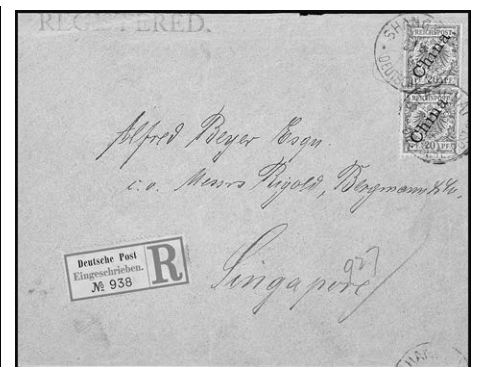 REGISTERED.
SHANG
DEUTS
REICHSPOST
China
20 PF. 20
REICHSPOST
China
20 PF. 20
Alfred Beyer Esqu.
c.o. Messrs Rigold, Bergmann & Co,
Singapore
927
Deutsche Post
Eingeschrieben.
№ 938
R